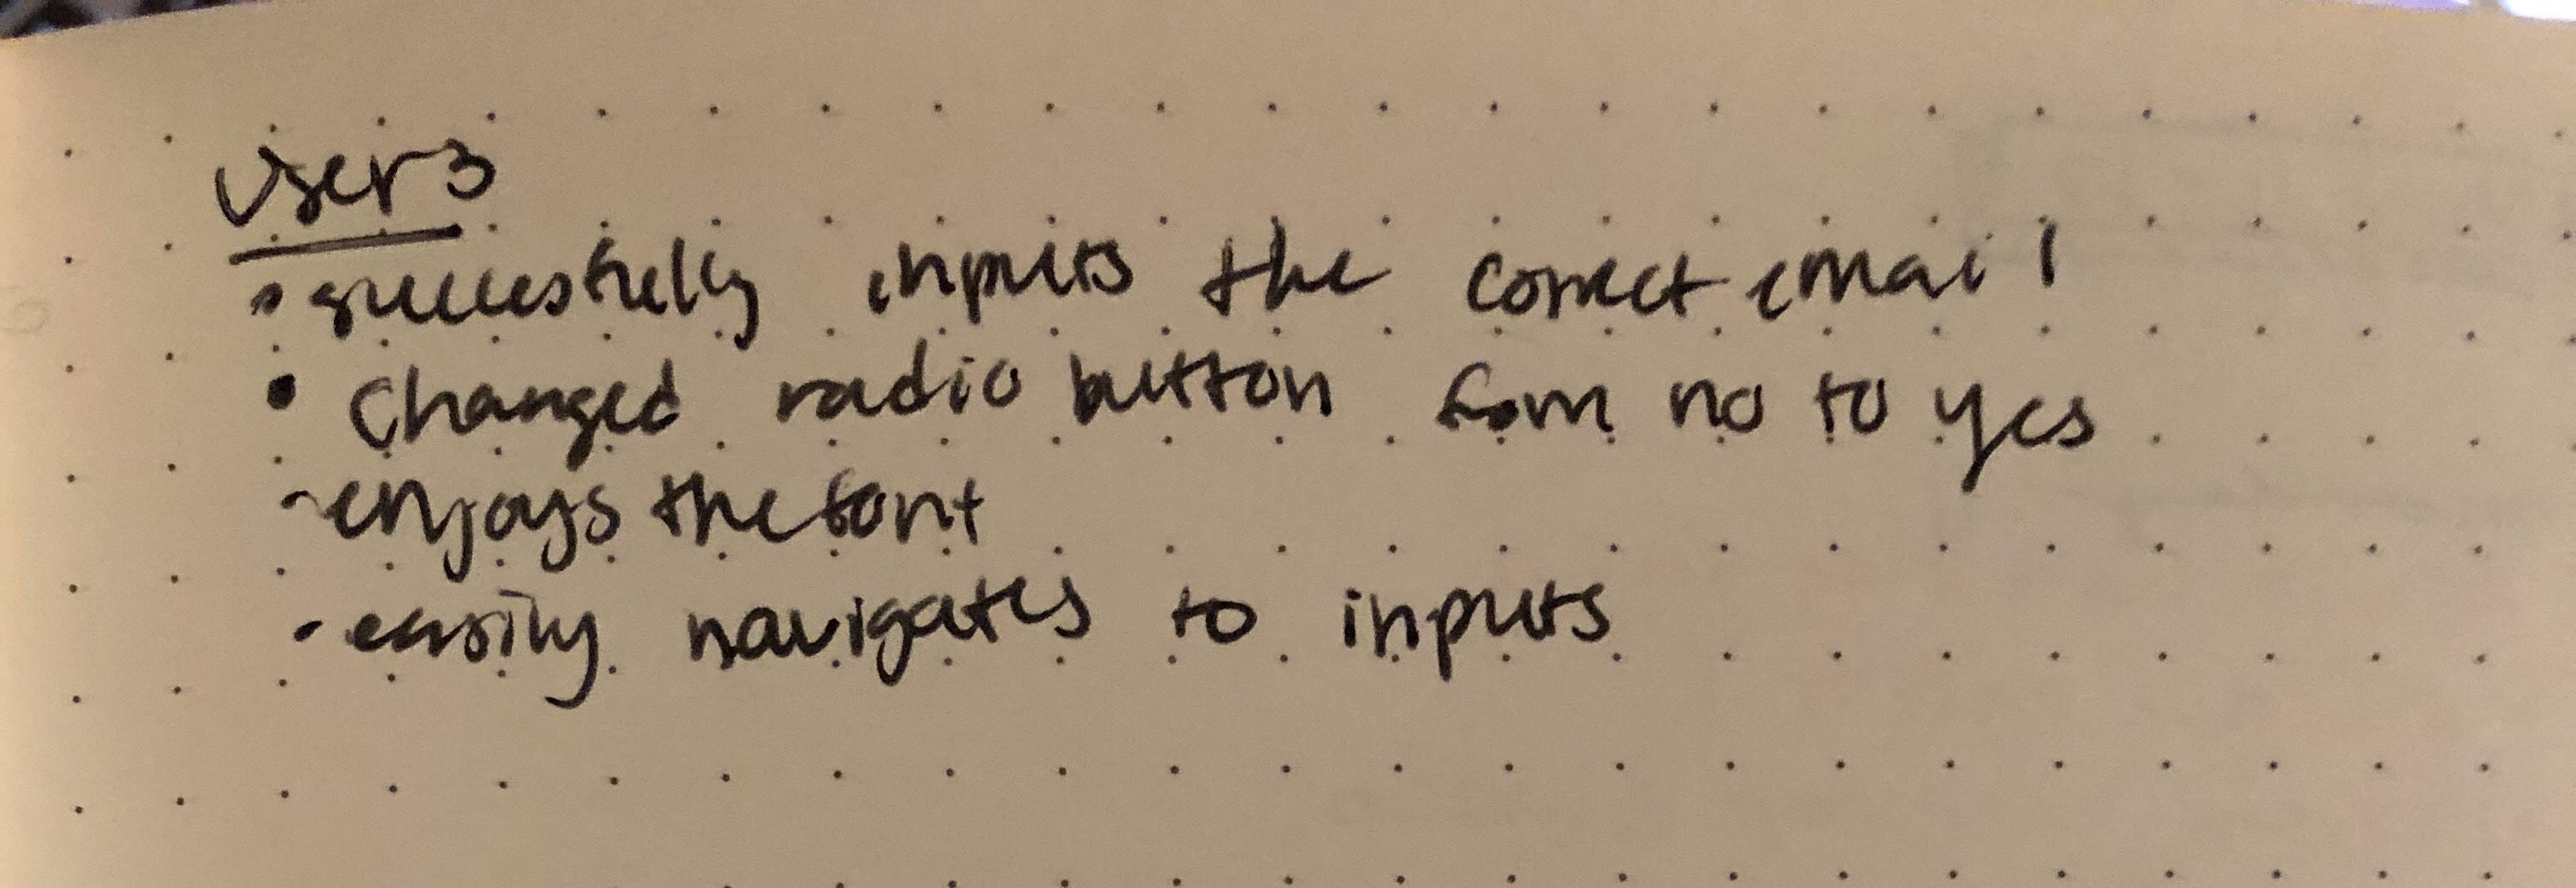 User 3
• successfully inputs the correct email
• Changed radio button from no to yes
- enjoys the font
- easily navigates to inputs